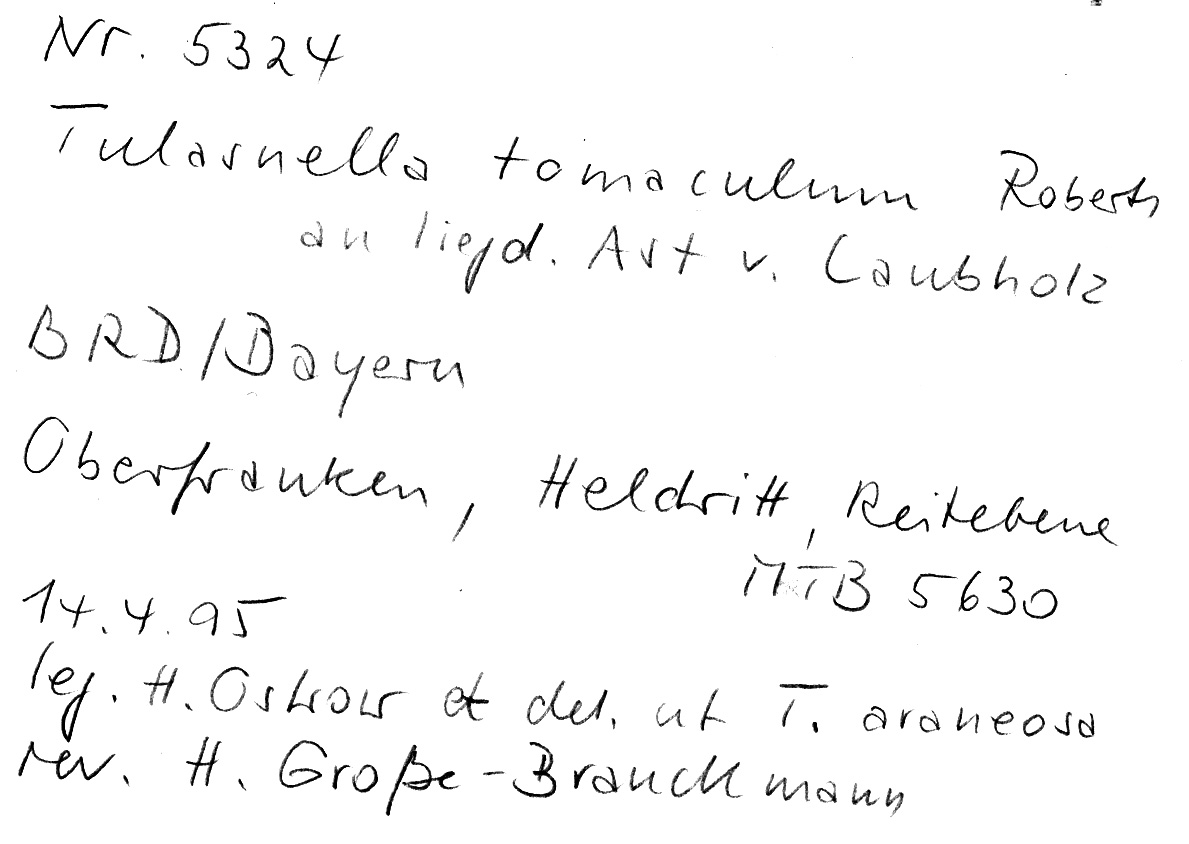 Nr. 5324
Tulasnella tomaculum Roberts
an liegd. Ast v. Laubholz
BRD/Bayern
Oberfranken, Heldritt, Reitebene
MTB 5630
14.4.95
leg. H. Ostrow et det. ut T. araneosa
rev. H. Große-Brauckmann